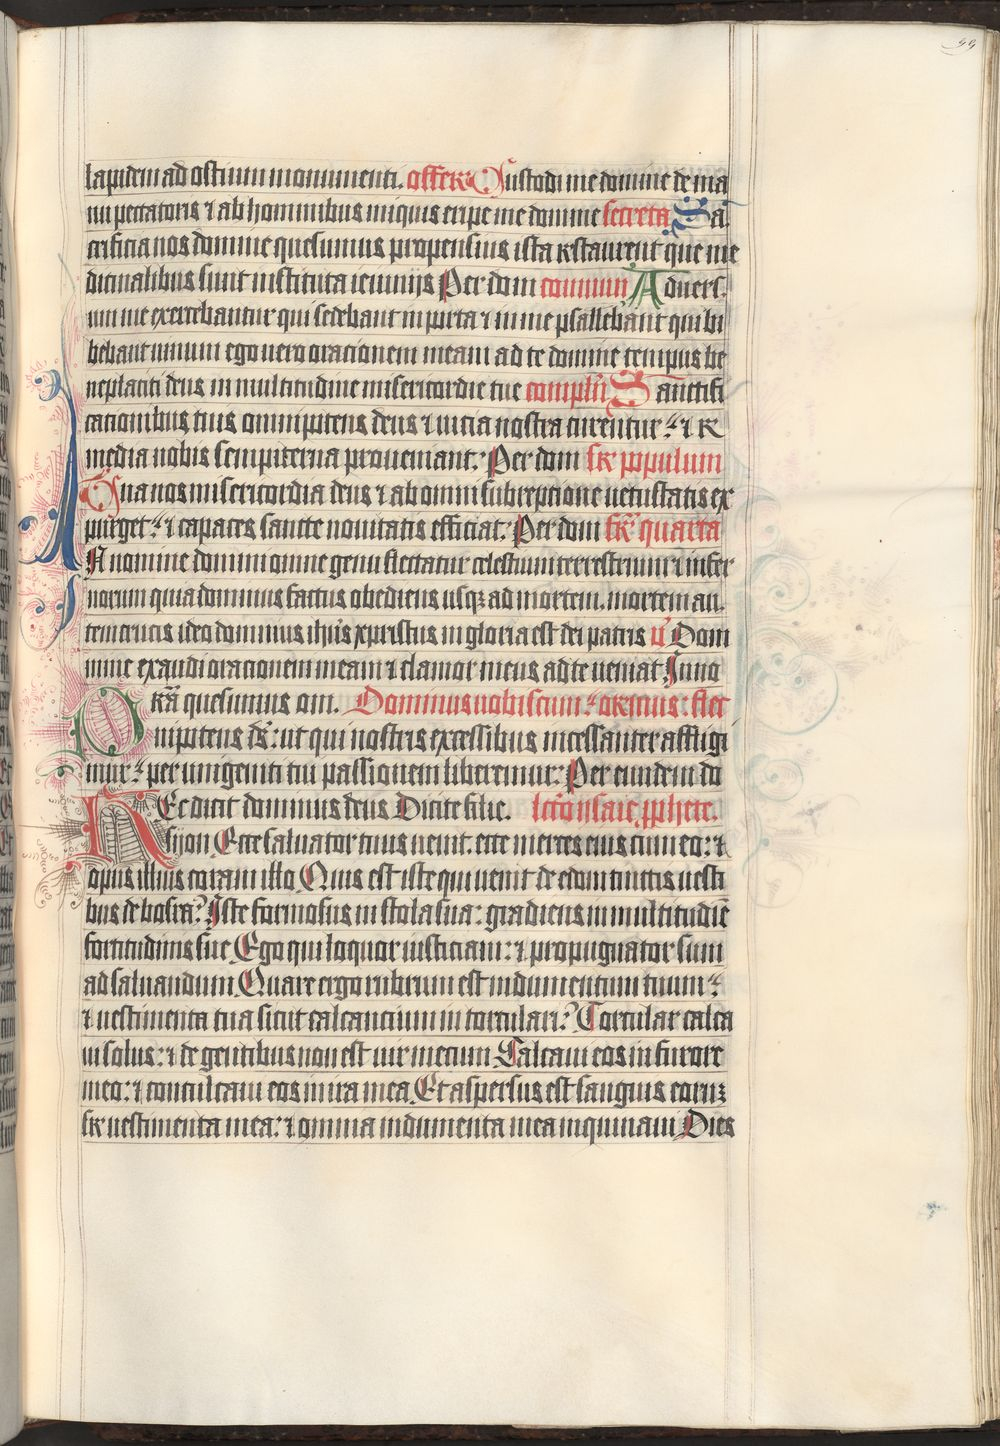 99
lapidem ad ostium monumenti. offert Custodi me domine de ma
nu peccatoris ⁊ ab hominibus iniquis eripe me domine secreta Sa
crificia nos domine quesumus propensius ista restaurent que me
dicinalibus sunt instituta ieiunijs Per dom commun Aduers.
um me exercebantur qui sedebant in porta ⁊ in me psallebant qui bi
bebant uinum ego uero orationem meam ad te domine tempus be
neplaciti deus in multitudine misericordie tue complen̄ Sanctifi
cationibus tuis omnipotens deus ⁊ uicia nostra curentur: ⁊ re
media nobis sempiterna proueniant: Per dom sr populum
Tua nos misericordia deus ⁊ ab omni subreptione uetustatis ex
purget: ⁊ capaces sancte nouitatis efficiat: Per dom fr̄ quarta
In nomine domini omne genu flectatur celestium terrestrium ⁊ infer
norum quia dominus factus obediens usqz ad mortem. mortem au.
tem crucis ideo dominus ihūs xpristus in gloria est dei patris ū Dom
mine exaudi orationem meam ⁊ clamor meus ad te ueniat Inno
Presta quesumus om. Dominus uobiscum: oremus: flec
nipotens ds̄: ut qui nostris excessibus incessanter affligi
mur: per unigeniti tui passionem liberemur: Per eundem do
Hec dicit dominus deus Dicite filie. lcc̄o ysaie pphete.
sijon Ecce saluator tuus uenit. ecce merces eius cum eo: ⁊
opus illius coram illo Quis est iste qui uenit de edom tinctis uesti
bus de bosra? Iste formosus in stola sua: gradiens in multitudīe
fortitudinis sue Ego qui loquor iusticiam: ⁊ propugnator sum
ad saluandum Quare ergo rubrum est indumentum tuum:
⁊ uestimenta tua sicut calcancium in torculari? Torcular calca
ui solus: ⁊ de gentibus non est uir mecum Calcaui eos in furore
meo: ⁊ conculcaui eos in ira mea Et aspersus est sanguis eorum
sr uestimenta mea: ⁊ omnia indumenta mea inquinaui Dies